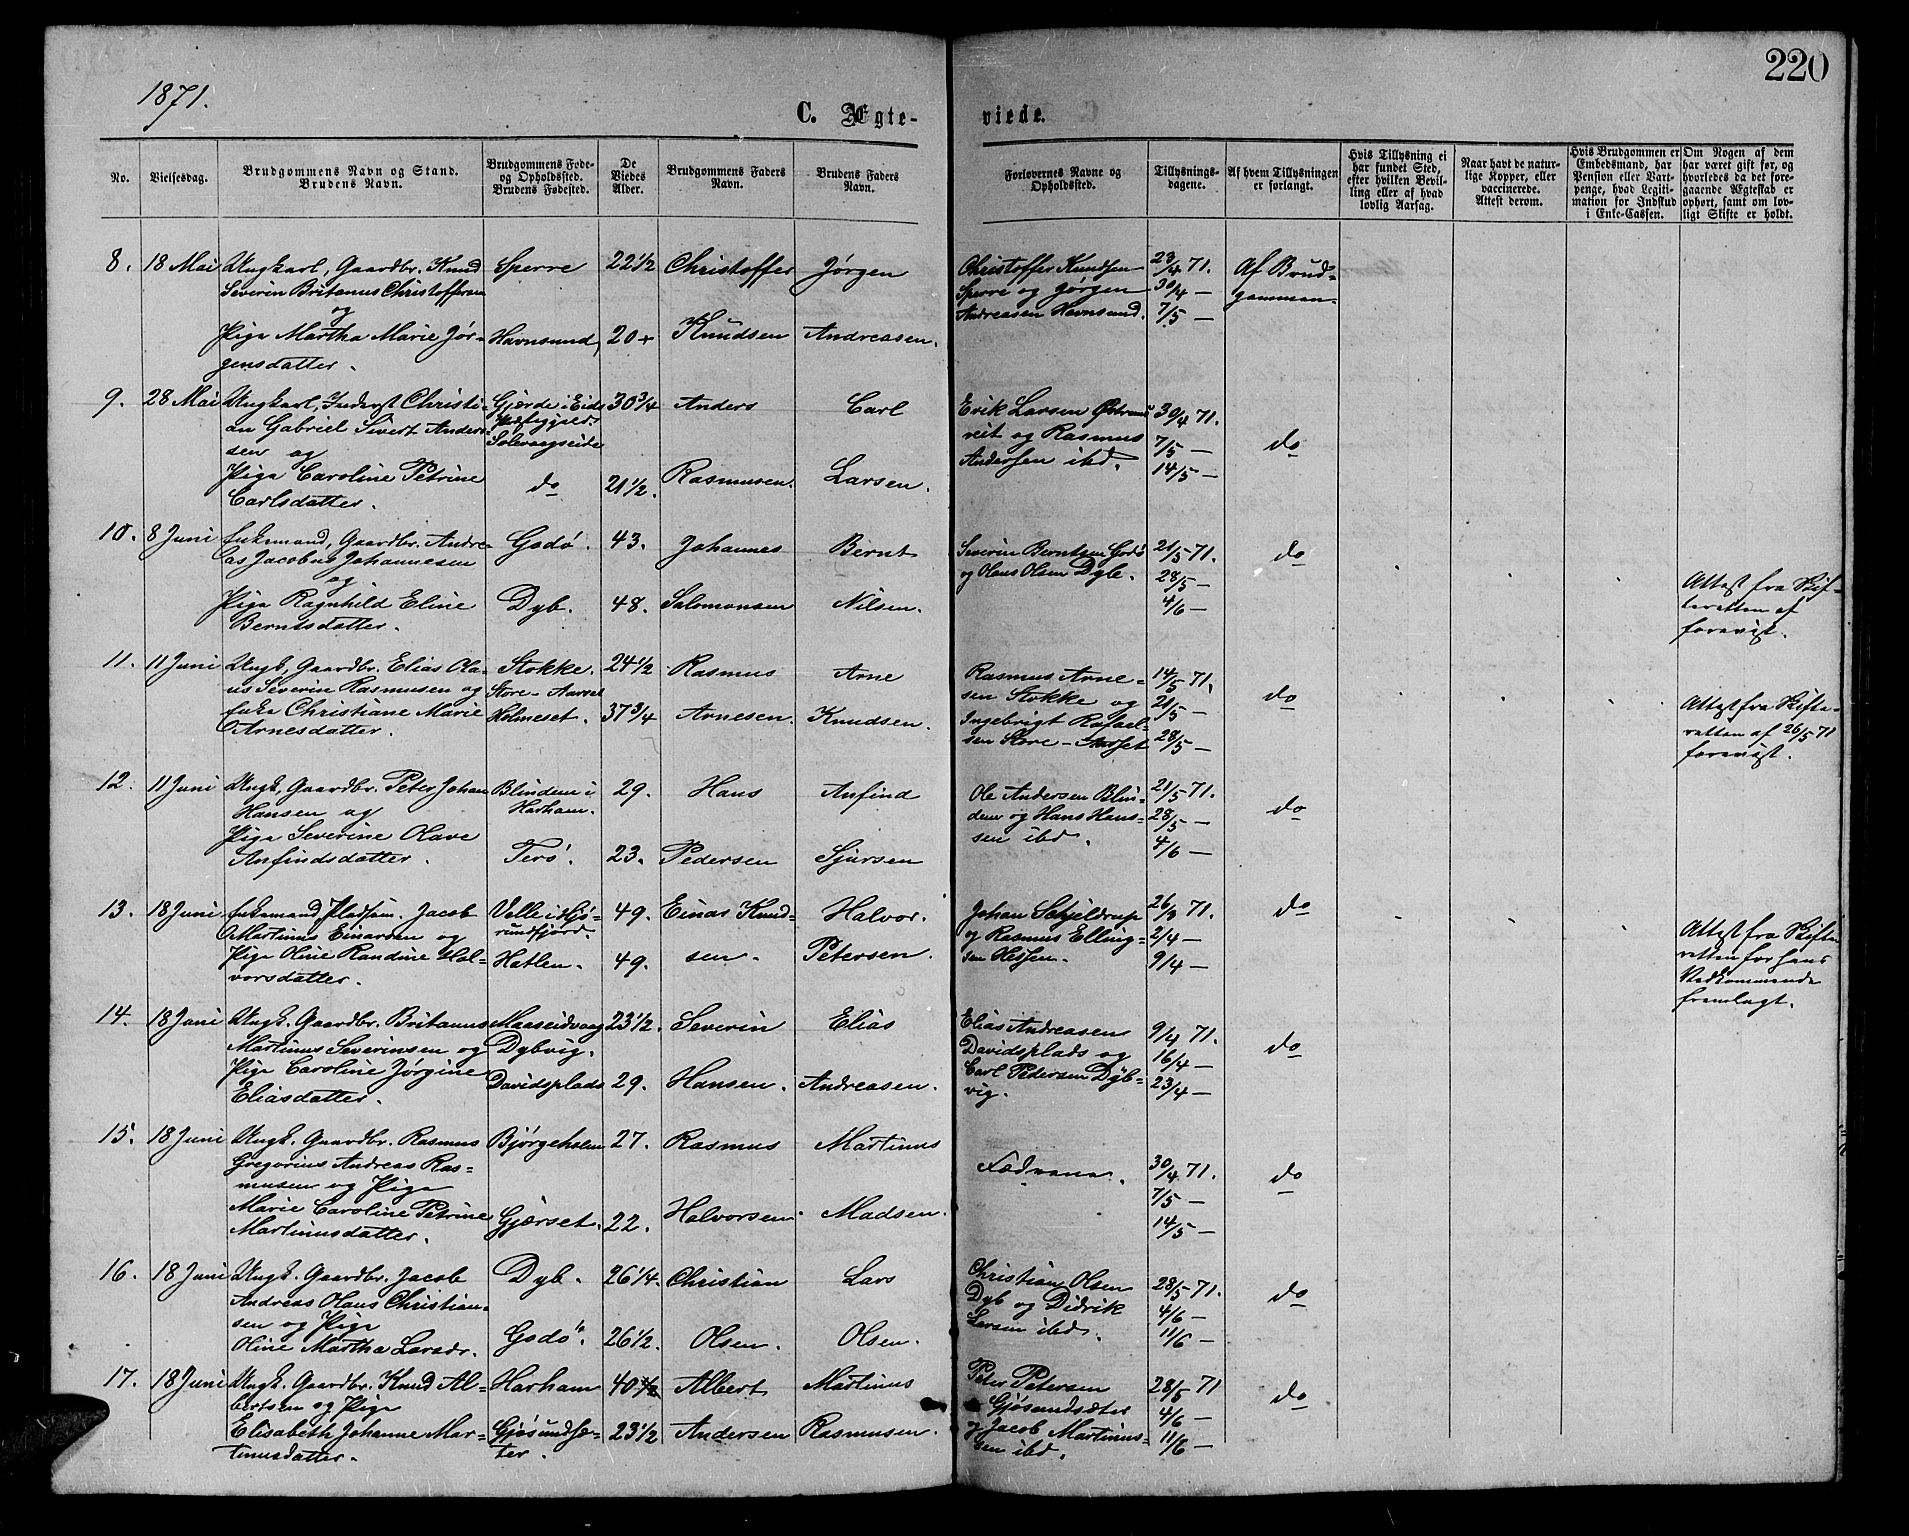 1871.
220
C. Ægte-
viede.
No.
Vielsesdag.
Brudgommens Navn og Stand.
Brudens Navn.
Brudgommens Føde-
og Opholdssted.
Brudens Fødested.
De
Viedes
Alder.
Brudgommens Faders
Navn.
Brudens Faders
Navn.
Forlovernes Navne og
Opholdssted.
Tillysnings-
dagene.
Af hvem Tillysningen
er forlangt.
Hvis Tillysning ei
har fundet Sted,
efter hvilken Bevil-
ling eller af hvad
lovlig Aarsag.
Naar havt de natur-
lige Kopper, eller
vaccinerede.
Attest derom.
Hvis Brudgommen er
Embedsmand, har
Pension eller Vart-
penge, hvad Legiti-
mation for Indskud
i Enke-Cassen.
Om Nogen af dem
har været gift før, og
hvorledes da det fore-
gaaende Ægteskab er
ophørt, samt om lov-
ligt Skifte er holdt.
8. 18 Mai
Ungkarl, Gaardbr. Knud
Severin Britanus Christoffersen
og
Pige Martha Marie Jør-
gensdatter.
Sperre
Havnsund,
22 1/2
20 +
Christoffer
Knudsen
Jørgen
Andreasen.
Christoffer Knudsen
Sperre og Jørgen
Andreasen Havnsund.
23/4 71.
30/4 —
7/5 —
Af Brud-
gommen.
9. 28 Mai
Ungkarl, Inderst Christi-
an Gabriel Sivert Ander-
sen og
Pige Caroline Petrine
Carlsdatter.
Gjerde i Eids
Præstegjeld.
Solevaagseide
do
30 3/4
21 1/2.
Anders
Rasmusen.
Carl
Larsen.
Erik Larsen
veit og Rasmus
Andersen ibd.
30/4 71.
7/5 —
14/5 —
do
10. 8 Juni
Enkemand, Gaardbr. Andre-
as Jacobus Johannesen
og
Pige Ragnhild Eline
Berntsdatter.
Godø.
Dyb.
43.
48.
Johannes
Salomonsen
Bernt
Nilsen.
Severin Berntsen Godø
og Olaus Olsen Dybe.
21/5 71.
28/5 —
4/6 —
do
Attest fra Skif-
teretten af
forevist.
11. 11 Juni
Ungk, Gaardbr. Elias Ola-
us Severin Rasmusen og
Enke Christiane Marie
Arnesdatter.
Stokke.
Store-Aarset
Holmeset.
24 1/2
37 3/4
Rasmus
Arnesen.
Arne
Knudsen.
Rasmus Arne-
sen Stokke og
Ingebrigt Rafael-
sen Store-Aarset
14/5 71.
21/5 —
28/5 —
do
Attest fra Skifte-
retten af 26/5 71
forevist.
12. 11 Juni
Ungk, Gaardbr. Peter Johan
Hansen og
Pige Severine Olave
Anfindsdatter.
Blindem i
Harham.
Terø.
29.
23.
Hans
Pedersen
Anfind
Sjursen
Ole Andersen Blin-
dem og Hans Hans-
sen ibd.
21/5 71.
28/5 —
4/6 —
do
13. 18 Juni
Enkemand, Pladsm. Jacob
Martinus Einarsen og
Pige Oline Randine Hal-
vorsdatter.
Velle i Hjø-
rundfjord.
Hatlen.
49.
49.
Einar Knud-
sen.
Halvor.
Petersen.
Johan Schjeldrup
og Rasmus Elling-
sen Hessen.
26/3 71.
2/4 —
9/4 —
do
Attest fra Skifte
retten for hans
Vedkommende
fremlagt.
14. 18 Juni
Ungk. Gaardbr. Britanus
Martinus Severinsen og
Pige Caroline Jørgine
Eliasdatter.
Maaseidvaag
Dybvig.
Davidsplads
23 1/2.
29.
Severin
Hansen.
Elias
Andreasen.
Elias Andreasen
Davidsplads og
Carl Pedersen Dyb-
vig.
9/4 71.
16/4 —
23/4 —
do
15. 18 Juni
Ungk. Gaardbr. Rasmus
Gregorius Andreas Ras-
musen og Pige
Marie Caroline Petrine
Martinusdatter.
Bjørgeholm
Gjerset.
27.
22.
Rasmus
Halvorsen.
Martinus
Madsen.
Fædrene.
30/4 71.
7/5 —
14/5 —
do
16. 18 Juni
Ungk. Gaardbr. Jacob
Andreas Olaus Christian-
sen og Pige
Oline Martha Larsdr.
Dyb.
Godø.
26 1/4.
26 1/2.
Christian
Olsen.
Lars
Olsen.
Christian Olsen
Dyb og Didrik
Larsen ibd.
28/5 71.
4/6 —
11/6 —
do
17. 18 Juni
Ungk. Gaardbr. Knud Al-
bertsen og Pige
Elisabeth Johanne Mar-
tinusdatter.
Harham
Gjøsundsæ-
ter.
40 1/2
23 1/2
Albert
Andersen
Martinus
Rasmusen.
Peter Petersen
Gjøsundsæter
og Jacob Martinus-
sen ibd.
28/5 71
4/6 —
11/6 —
do